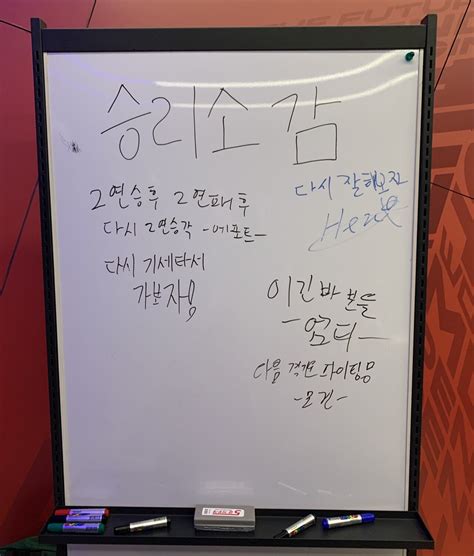 승리소감
2연승후 2연패후
다시 2연승각 -에포트-
다시 기세타서
가보자잉
다시 잘해보자
Hena
이긴 바 본들
- 엄디 -
다음 경기도 파이팅
-모건-